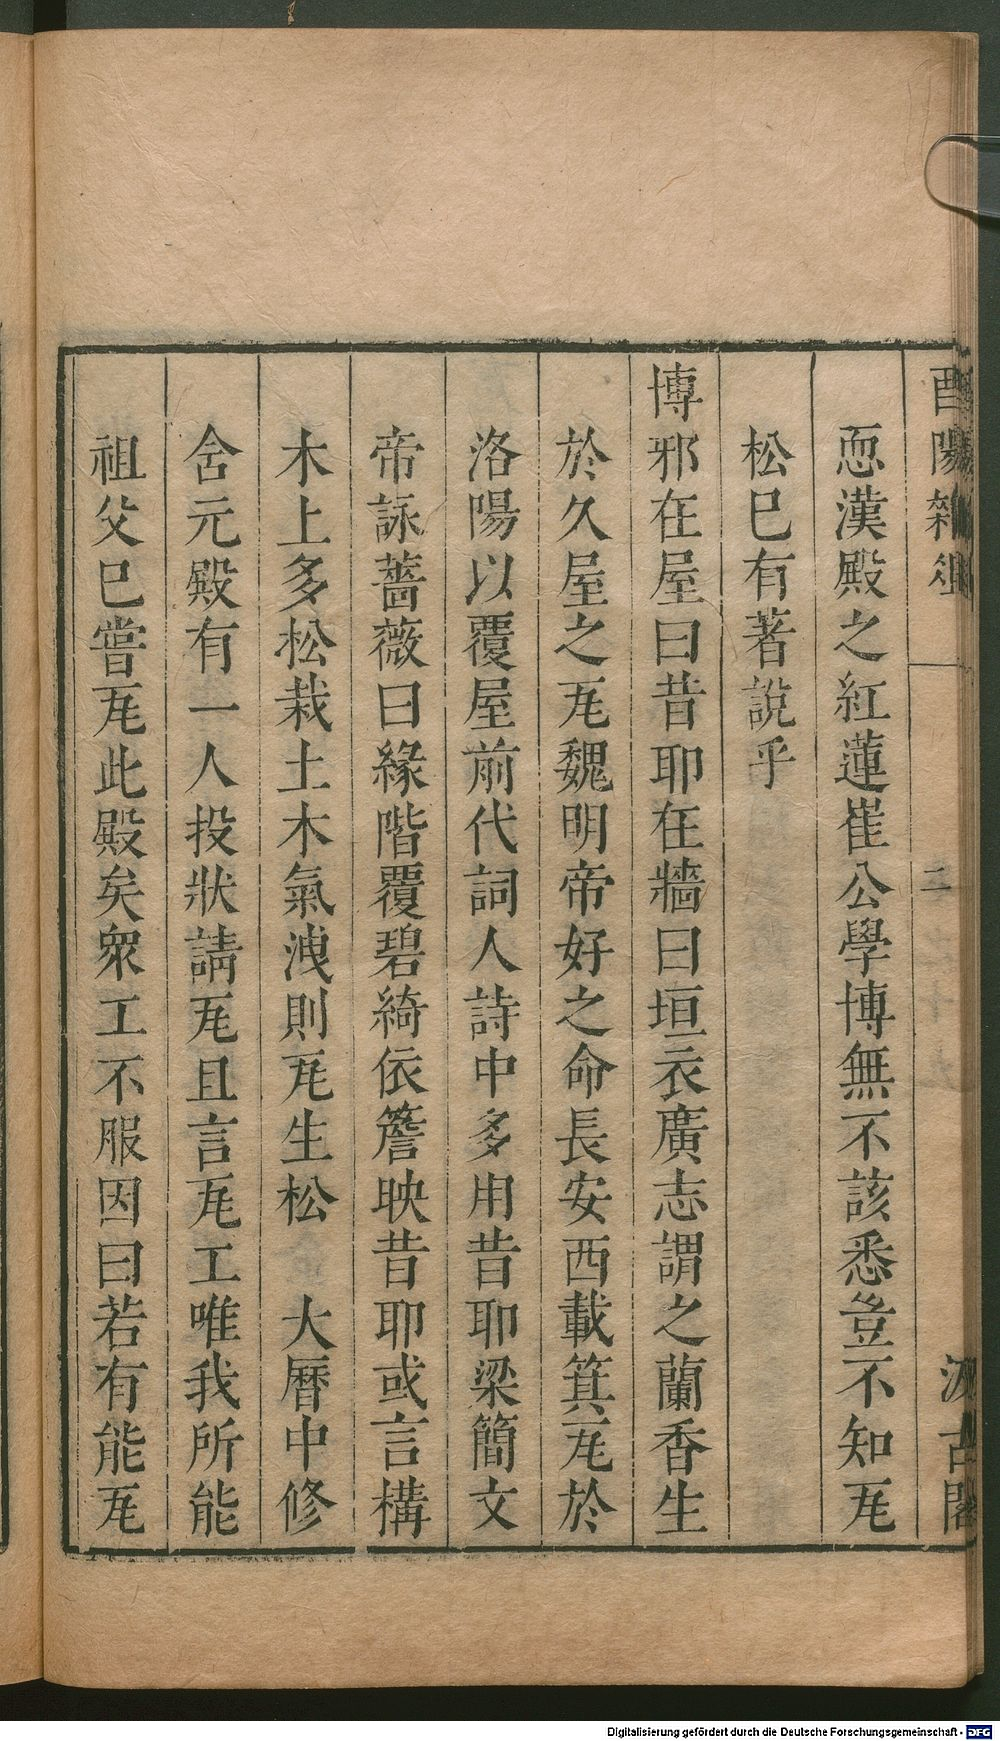 酉陽雜俎 二 汲古閣
恧漢殿之紅蓮崔公學博無不該悉豈不知瓦
松巳有著說乎
博邪在屋曰昔耶在牆曰垣衣廣志謂之蘭香生
於久屋之瓦魏明帝好之命長安西載箕瓦於
洛陽以覆屋前代詞人詩中多用昔耶梁簡文
帝詠薔薇曰緣階覆碧綺依簷映昔耶或言構
木上多松栽土木氣洩則瓦生松　大曆中修
含元殿有一人投狀請瓦且言瓦工唯我所能
祖父巳嘗瓦此殿矣眾工不服因曰若有能瓦
Digitalisierung gefördert durch die Deutsche Forschungsgemeinschaft - DFG